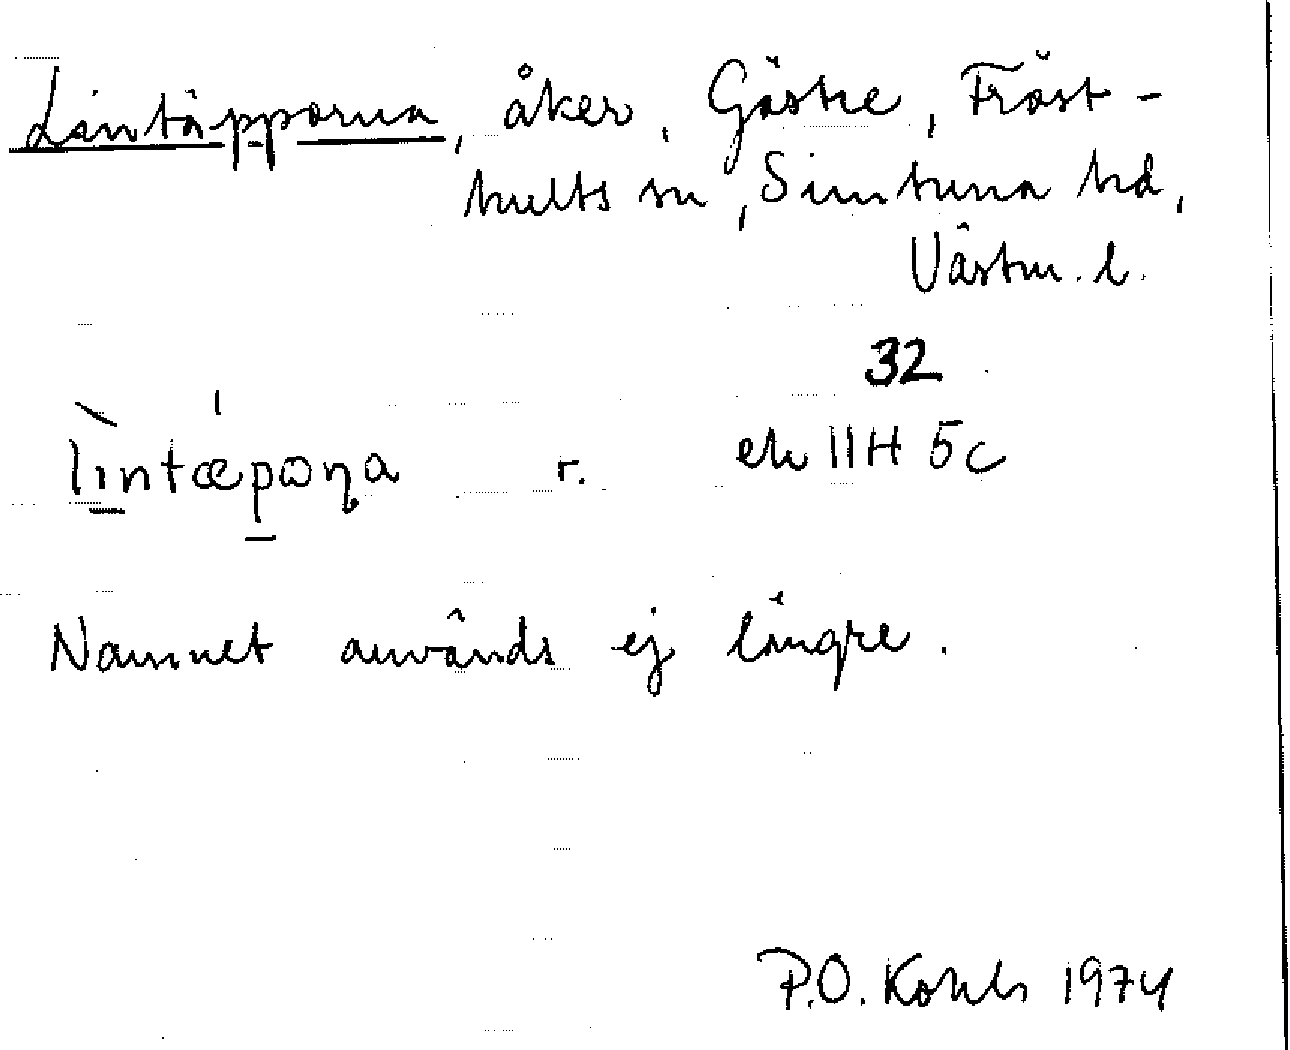 Lintäpporna, åker, Gäske, Fröst-
hults sn, Simtuna hd,
Västm. l.
32
lìntæpωɳa r. ek 11H 5c
Namnet används ej längre.
P.O. 1974